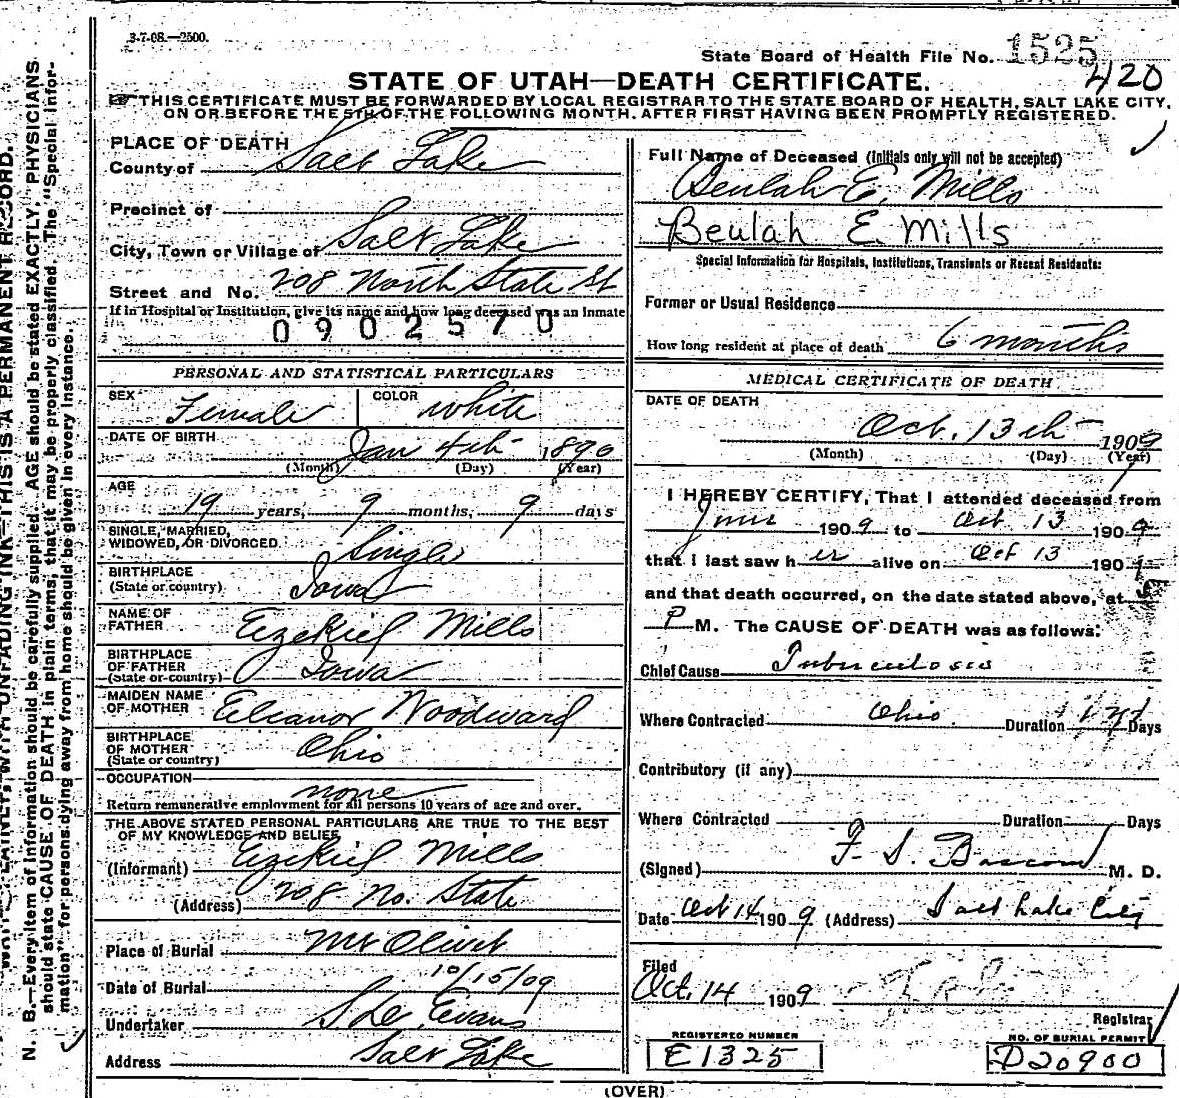 3-7-08.—2500.
State Board of Health File No. 1525
420
STATE OF UTAH—DEATH CERTIFICATE.
THIS CERTIFICATE MUST BE FORWARDED BY LOCAL REGISTRAR TO THE STATE BOARD OF HEALTH, SALT LAKE CITY,
ON OR BEFORE THE 5TH OF THE FOLLOWING MONTH, AFTER FIRST HAVING BEEN PROMPTLY REGISTERED.
PLACE OF DEATH
County of Salt Lake
Precinct of
City, Town or Village of Salt Lake
Street and No. 208 North State St
If in Hospital or Institution, give its name and how long deceased was an inmate
0902570
PERSONAL AND STATISTICAL PARTICULARS
SEX Female COLOR white
DATE OF BIRTH Jan 4th 1890
(Month) (Day) (Year)
AGE
19 years, 9 months, 9 days
SINGLE, MARRIED,
WIDOWED, OR DIVORCED Single
BIRTHPLACE
(State or country) Iowa
NAME OF
FATHER Ezekiel Mills
BIRTHPLACE
OF FATHER
(State or country) Iowa
MAIDEN NAME
OF MOTHER Eleanor Woodward
BIRTHPLACE
OF MOTHER
(State or country) Ohio
OCCUPATION
none
Return remunerative employment for all persons 10 years of age and over.
THE ABOVE STATED PERSONAL PARTICULARS ARE TRUE TO THE BEST
OF MY KNOWLEDGE AND BELIEF
(Informant) Ezekiel Mills
(Address) 208 No. State
Place of Burial Mt Olivet
Date of Burial 10/15/09
Undertaker Evans
Address Salt Lake
Full Name of Deceased (Initials only will not be accepted)
Beulah E. Mills
Beulah E. Mills
Special Information for Hospitals, Institutions, Transients or Recent Residents:
Former or Usual Residence
How long resident at place of death 6 months
MEDICAL CERTIFICATE OF DEATH
DATE OF DEATH
Oct. 13th 1909
(Month) (Day) (Year)
I HEREBY CERTIFY, That I attended deceased from
June 1909 to Oct 13 1909
that I last saw her alive on Oct 13 190
and that death occurred, on the date stated above, at 5
P M. The CAUSE OF DEATH was as follows:
Chief Cause Tuberculosis
Where Contracted Ohio Duration Days
Contributory (if any)
Where Contracted Duration Days
(Signed) F. S. Bascom M. D.
Date Oct 14 1909 (Address) Salt Lake City
Filed
Oct. 14 1909
Registrar
REGISTERED NUMBER
E1325
NO. OF BURIAL PERMIT
D20900
(OVER)
N. B.—Every item of information should be carefully supplied. AGE should be stated EXACTLY, PHYSICIANS
should state CAUSE OF DEATH in plain terms, that it may be properly classified. The "Special Infor-
mation" for persons dying away from home should be given in every instance.
UNFADING INK—THIS IS A PERMANENT RECORD.